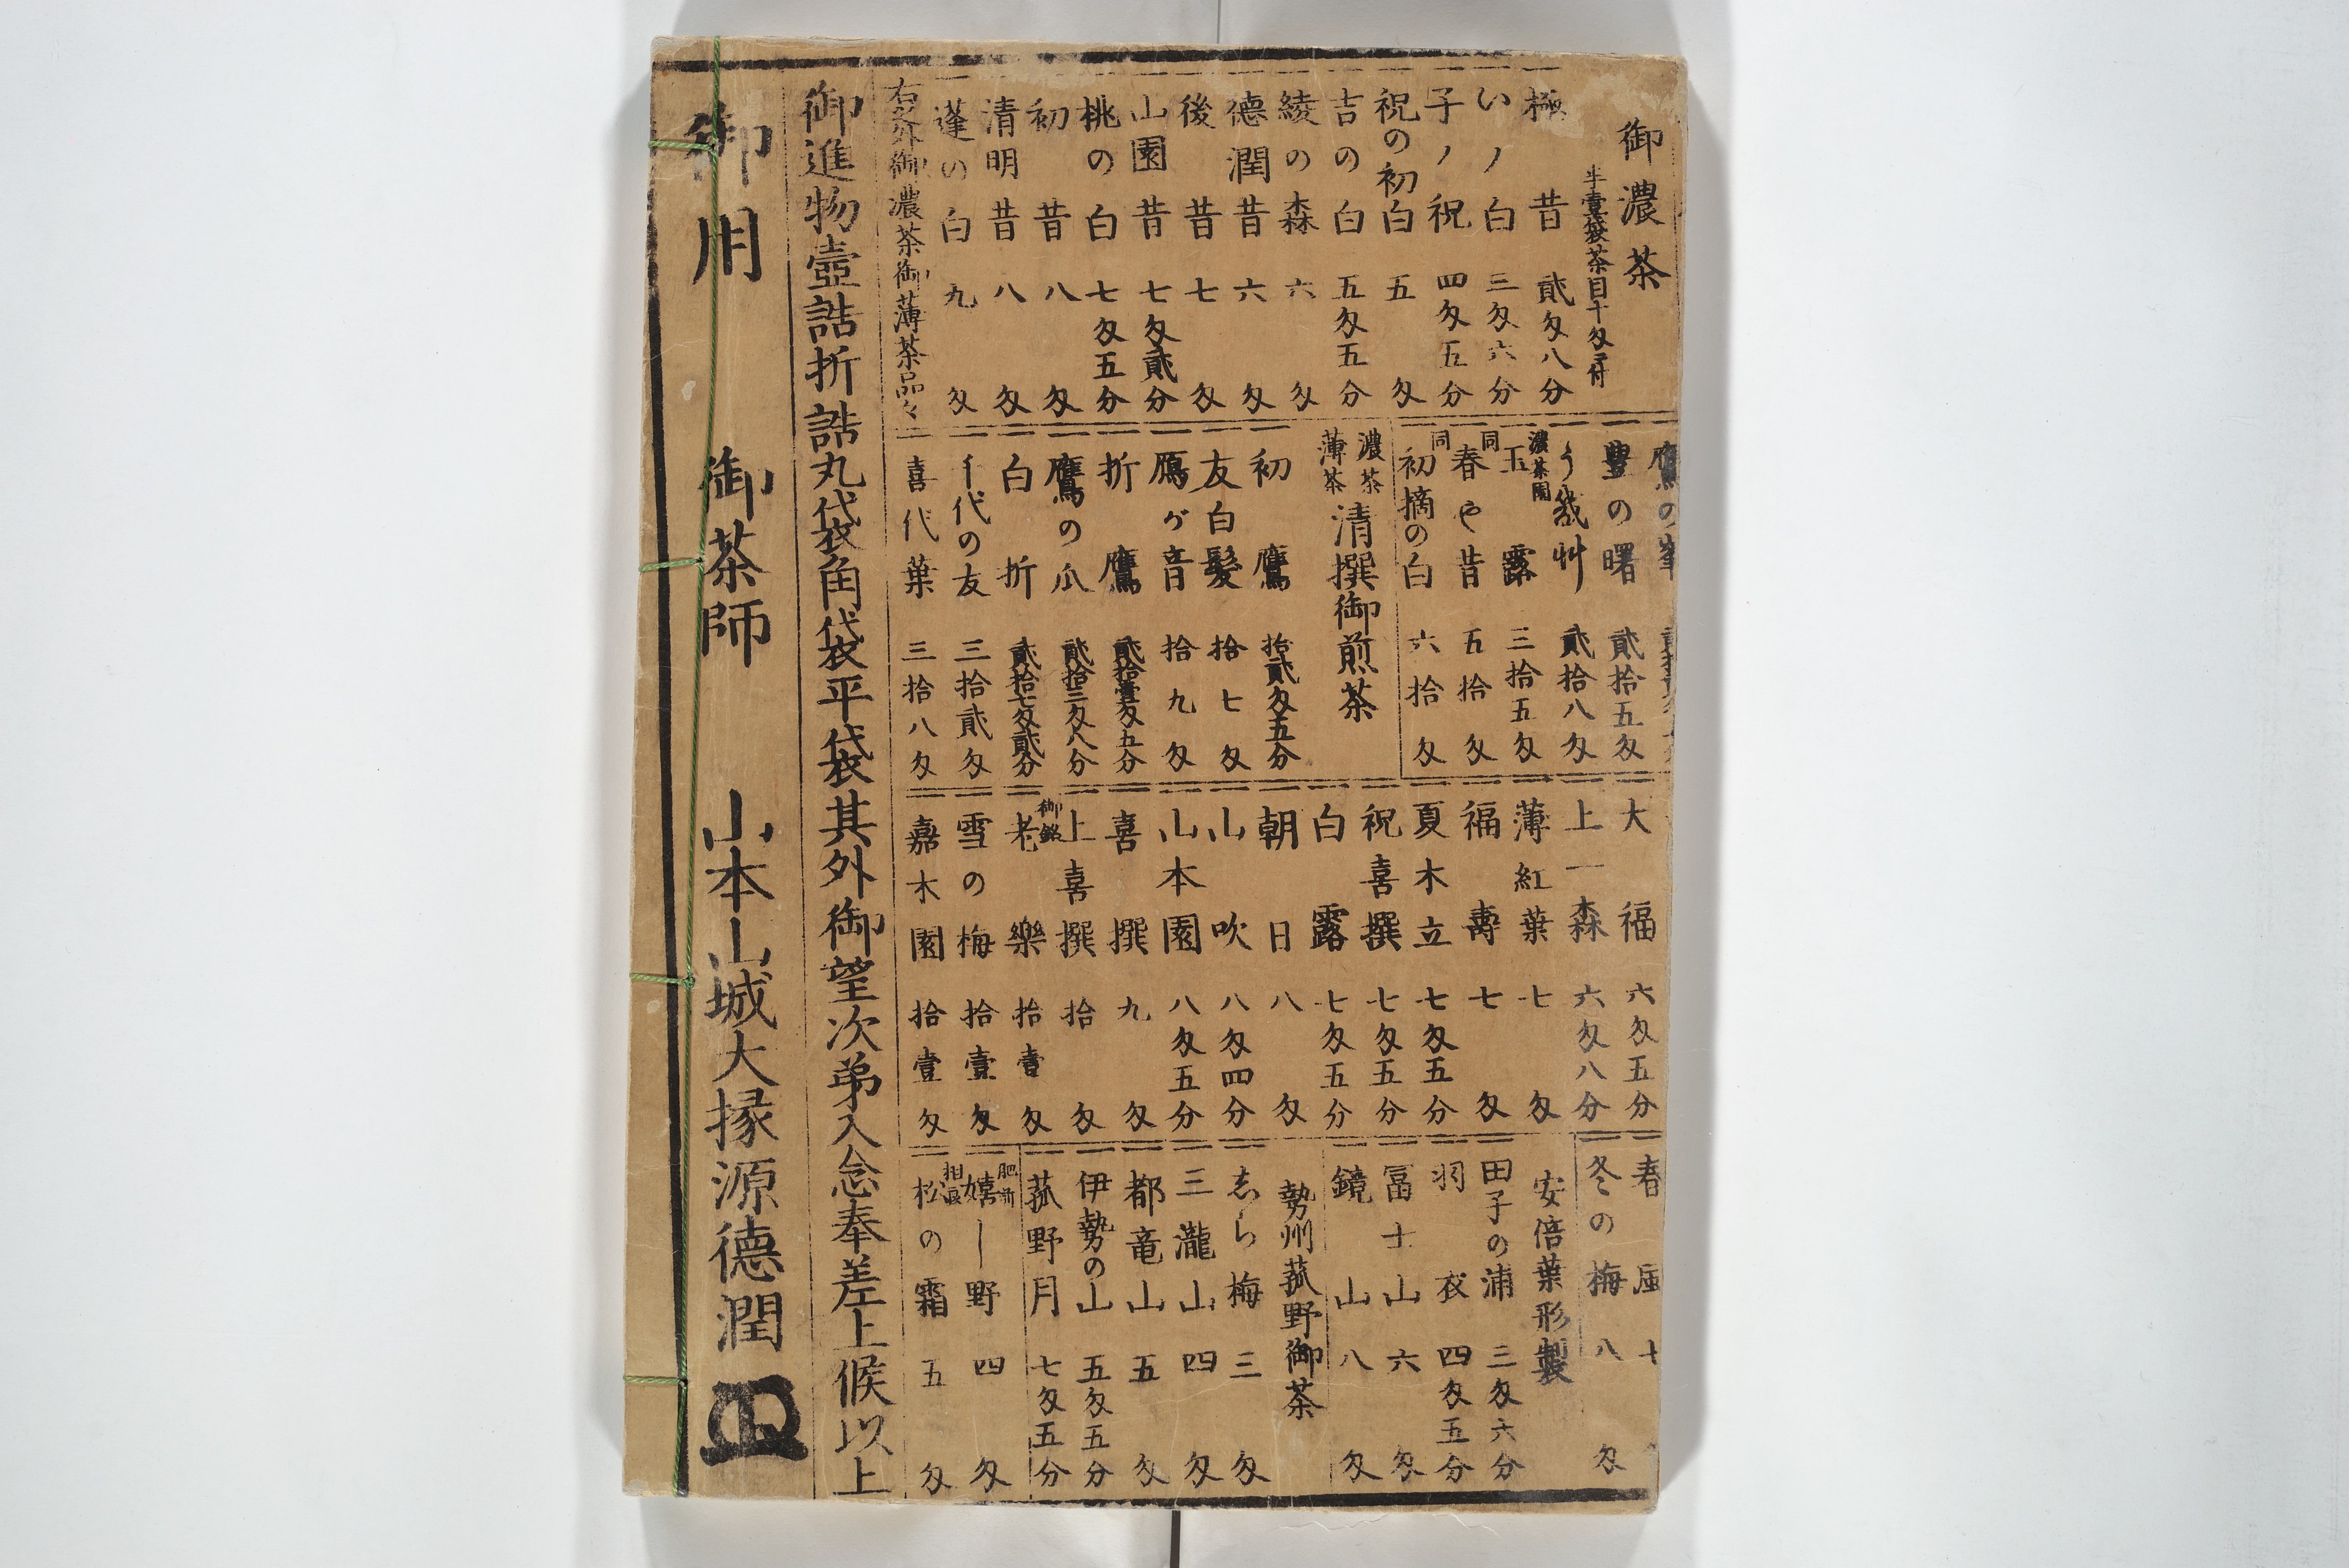 御濃茶
半壹袋茶目十匁ニ付
極昔 貳匁八分
いノ白 三匁六分
子ノ祝 四匁五分
祝の初白 五匁
吉の白 五匁五分
綾の森 六匁
德潤昔 六匁
後昔 七匁
山園昔 七匁貳分
桃の白 七匁五分
初昔 八匁
清明昔 八匁
蓬の白 九匁
右之外御濃茶御薄茶品々
鷹の峯
豊の曙 貳拾五匁
う哉艸 貳拾八匁
濃茶園 玉露 三拾五匁
同 春や昔 五拾匁
同 初摘の白 六拾匁
濃茶 薄茶 清撰御煎茶
初鷹 拾貳匁五分
友白髪 拾七匁
鴈が音 拾九匁
折鷹 貳拾壹匁五分
鷹の爪 貳拾三匁八分
白折 貳拾七匁貳分
千代の友 三拾貳匁
喜代葉 三拾八匁
大福 六匁五分
上一森 六匁八分
薄紅葉 七匁
福壽 七匁
夏木立 七匁五分
祝喜撰 七匁五分
白露 七匁五分
朝日 八匁
山吹 八匁四分
山本園 八匁五分
喜撰 九匁
上喜撰 拾匁
御銘 老樂 拾壹匁
雪の梅 拾壹匁
嘉木園 拾壹匁
春風 十
冬の梅 八匁
安倍葉形製
田子の浦 三匁六分
羽衣 四匁五分
冨士山 六匁
鏡山 八匁
勢州菰野御茶
志ら梅 三匁
三瀧山 四匁
都竜山 五匁
伊勢の山 五匁五分
菰野月 七匁五分
肥前 嬉し野 四匁
相良 松の霜 五匁
御進物壺詰折詰丸袋角袋平袋其外御望次弟入念奉差上候以上
御用 御茶師 山本山城大掾源德潤